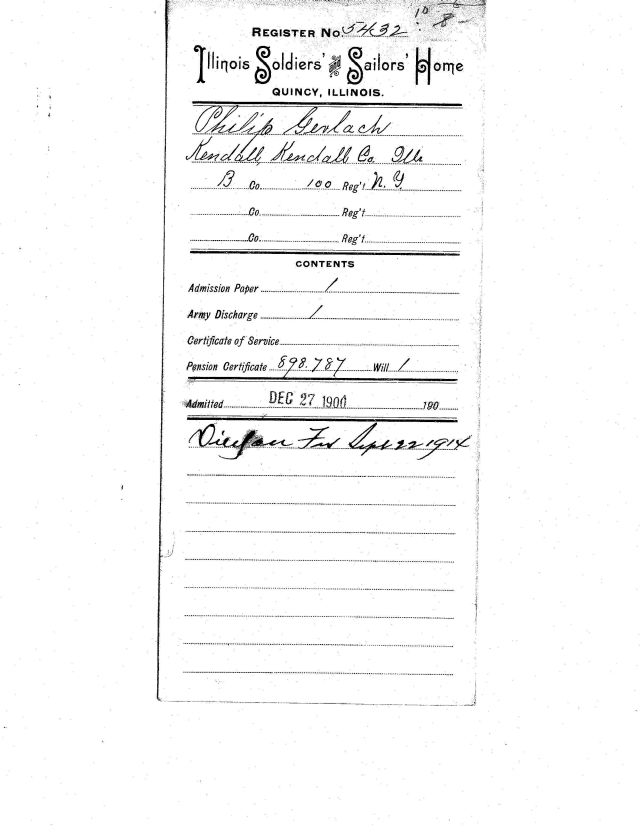 REGISTER No. 5432
Illinois Soldiers' and Sailors' Home
QUINCY, ILLINOIS.
Philip Gerlach
Kendall, Kendall Co. Ills
B Co. 100 Reg't N. Y.
Co. Reg't
Co. Reg't
CONTENTS
Admission Paper 1
Army Discharge 1
Certificate of Service
Pension Certificate 898.787 Will 1
Admitted DEC 27 1900 190
Fur Sept 22 1914